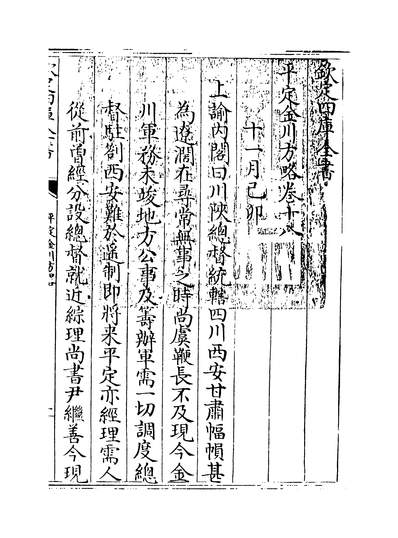 欽定四庫全書
平定金川方略卷十八
十一月己卯
上諭內閣曰川陝總督統轄四川西安甘肅幅㡓甚
為遼濶在尋常無事之時尚虞鞭長不及現今金
川軍務未竣地方公事及籌辦軍需一切調度總
督駐劄西安難於遥制即將来平定亦經理需人
從前曽經分設總督就近綜理尚書尹繼善今現
欽定四庫全書
平定金川方略